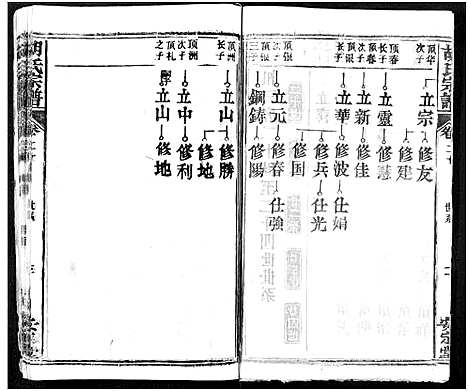 胡氏宗譜
卷二十
世系
安定堂
顶华之子
立宗
修友
修建
顶春长子
立靈
修慧
顶春次子
立新
修佳
顶张长子
立華
修波
仕娟
修兵
仕光
修国
顶张次子
立元
修春
仕強
顶张三子
鋼鋳
修陽
顶洲长子
立山
修勝
修地
顶洲次子
立中
修利
顶札之子
立山
修地
胡氏宗譜
世系
安定堂